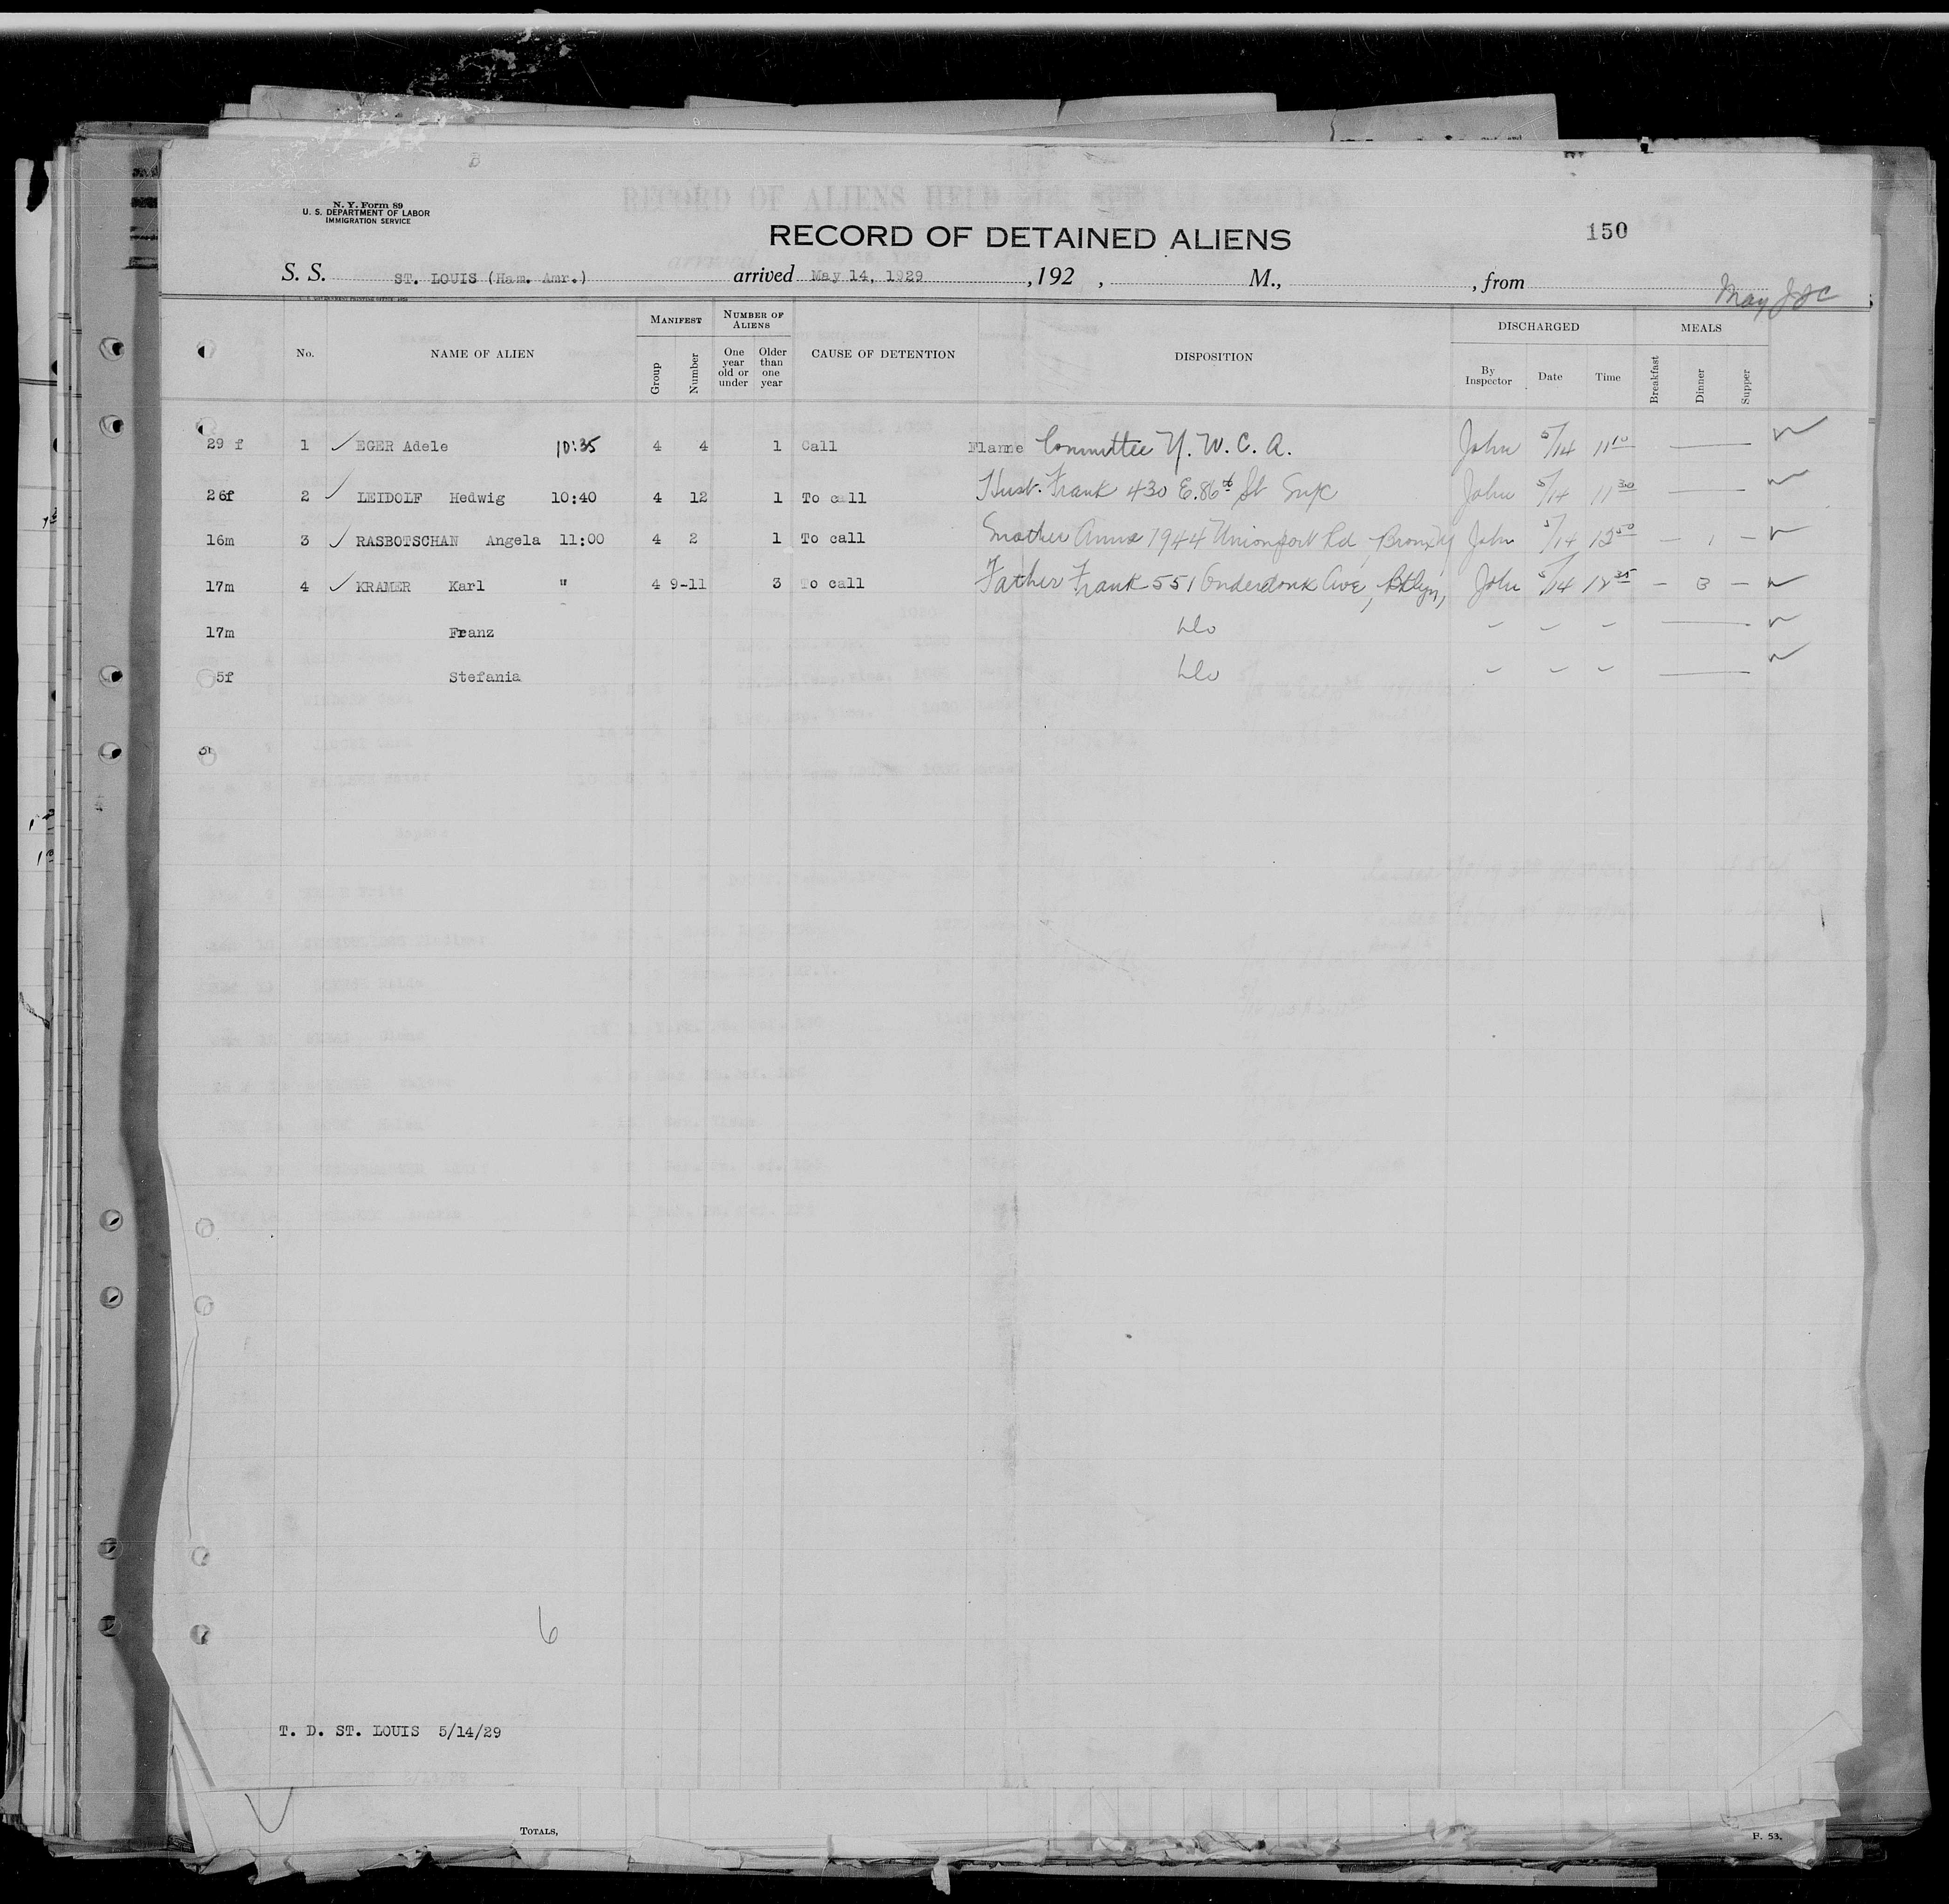 N. Y. Form 89
U. S. DEPARTMENT OF LABOR
IMMIGRATION SERVICE
RECORD OF DETAINED ALIENS
150
S. S. ST. LOUIS (Ham. Amr.) arrived May 14, 1929 , 192 , M., , from
May
No. NAME OF ALIEN MANIFEST Group Number NUMBER OF ALIENS One year old or under Older than one year CAUSE OF DETENTION DISPOSITION DISCHARGED By Inspector Date Time MEALS Breakfast Dinner Supper
29 f 1 ✓ EGER Adele 10:35 4 4 1 Call Flamme Committee Y. W. C. A. John 5/14 11 10
26f 2 ✓ LEIDOLF Hedwig 10:40 4 12 1 To call Husb. Frank 430 E. 86th St John 5/14 11 30
16m 3 ✓ RASBOTSCHAN Angela 11:00 4 2 1 To call Mother Anna 1944 Unionport Rd Bronx NY John 5/14 12 50 – 1 –
17m 4 ✓ KRAMER Karl " 4 9-11 3 To call Father Frank 551 Onderdonk Ave, Bklyn, John 5/14 12 35 – 3 –
17m Franz Do – – –
5f Stefania Do – – –
6
T. D. ST. LOUIS 5/14/29
TOTALS,
P. 53.